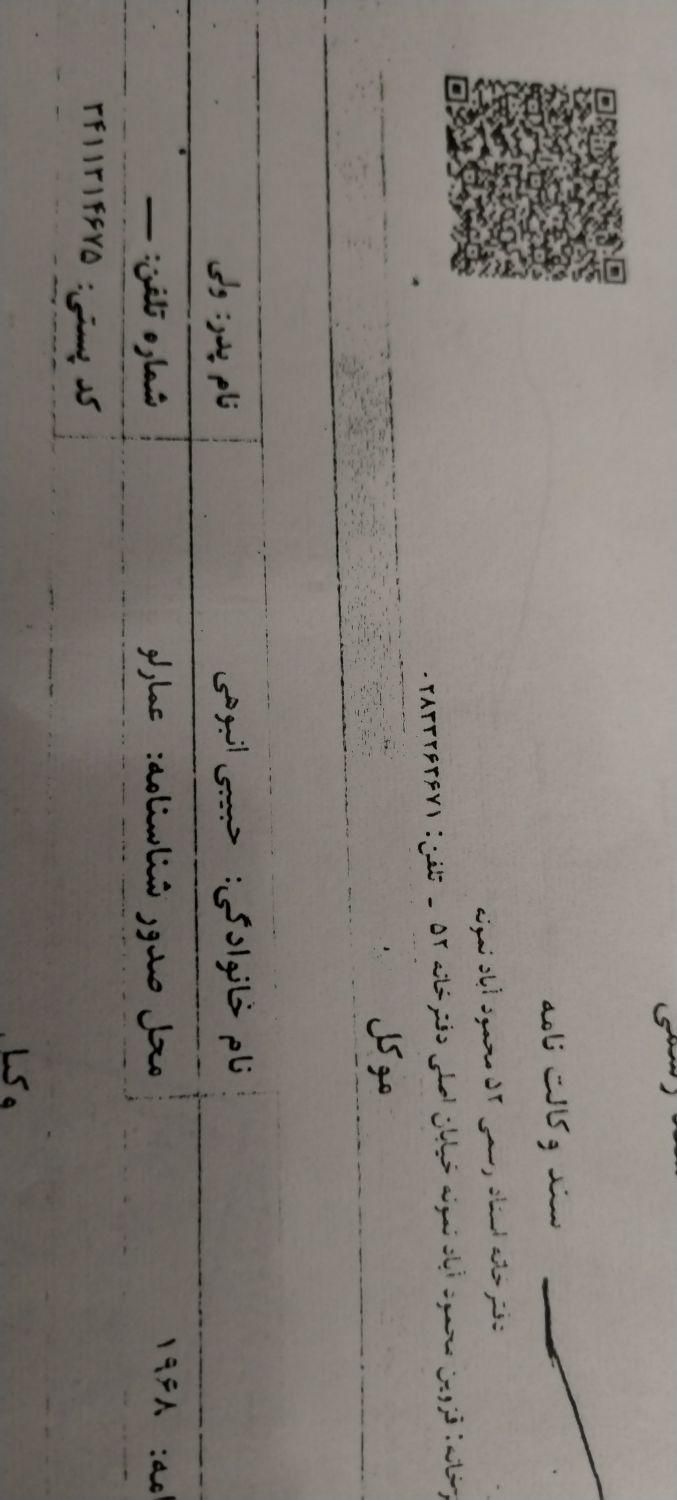 سند رسمی
سند وکالت نامه
دفترخانه اسناد رسمی ۵۲ محمود آباد نمونه
قزوین محمود آباد نمونه خیابان اصلی دفترخانه ۵۲ - تلفن: ۰۲۸۳۲۲۶۳۶۷۱
موکل
نام خانوادگی: حبیبی انبوهی نام پدر: ولی
۱۹۶۸ محل صدور شناسنامه: عمارلو شماره تلفن: —
کد پستی: ۳۴۱۱۳۱۴۶۷۵
وکیل